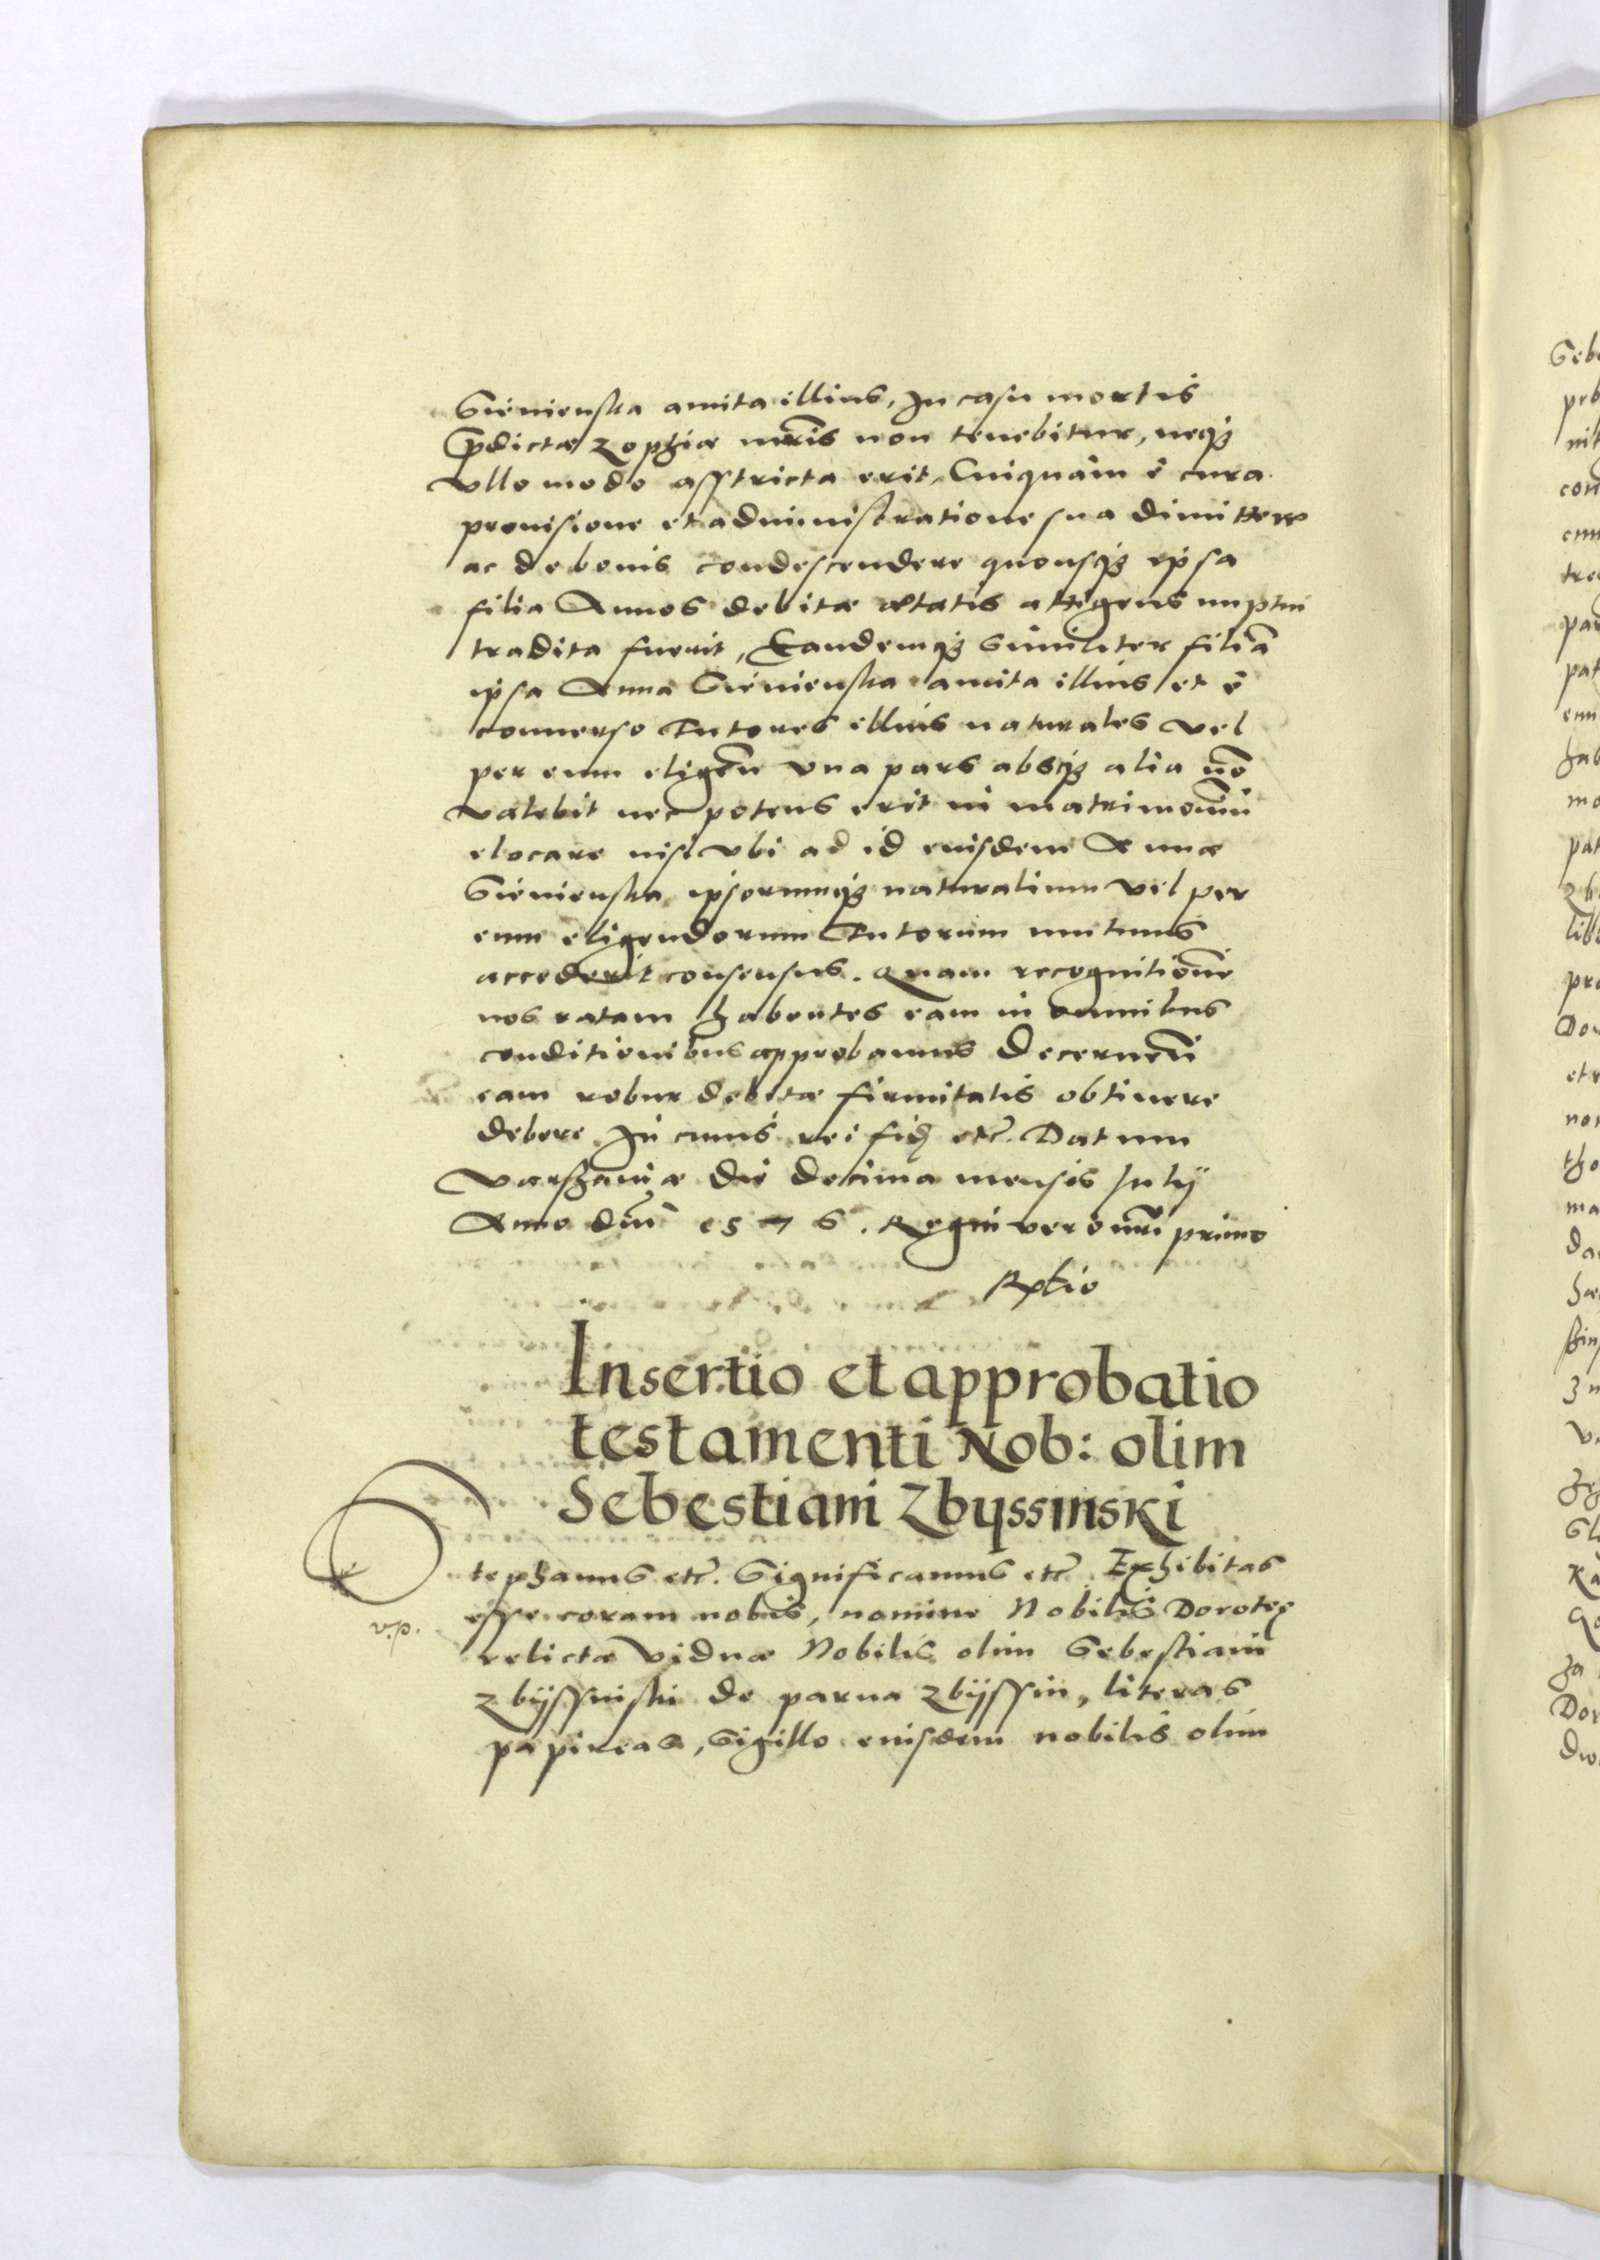 Sienienska amita illius, In casu mortis
p̄dictæ Zophiæ mr̄is non tenebitur, neqȝ
vllo modo asstricta erit, Cuiquam è cura
prouisione et administratione sua dimittere
ac de bonis condescendere quousqȝ ipsa
filia Annos debitæ ætatis attigens nuptui
tradita fuerit, Eandemqȝ similiter filiā
ipsa Anna Sienienska amita illius et è
conuerso Tutores illius naturales vel
per eum eligen̄ vna pars absqȝ alia nō
valebit nec potens erit in matrimoniū
elocare nisi vbi ad id eiusdem Annæ
Sienienska ipsorumqȝ naturalium vel per
eum eligendorum Tutorum mutuus
accederit consensus. Quam recognitionē
nos ratam habentes eam in omnibus
conditionibus approbamus Decernen̄
eam robur debitæ firmitatis obtinere
debere. In cuius rei fidē etc̄. Datum
Varshauiæ die decima mensis Julij
Anno dn̄i 1576. Regni vero nr̄i primo
Insertio et approbatio
testamenti Nob: olim
Sebestiani Zbyssinski
Stephanus etc̄. Significamus etc̄. Exhibitas
esse coram nobis, nomine Nobilis Doroteę
relictæ viduæ Nobilis olim Sebestiani
Zbijssinski de parua Zbijssin, literas
papireas, sigillo eiusdem nobilis olim